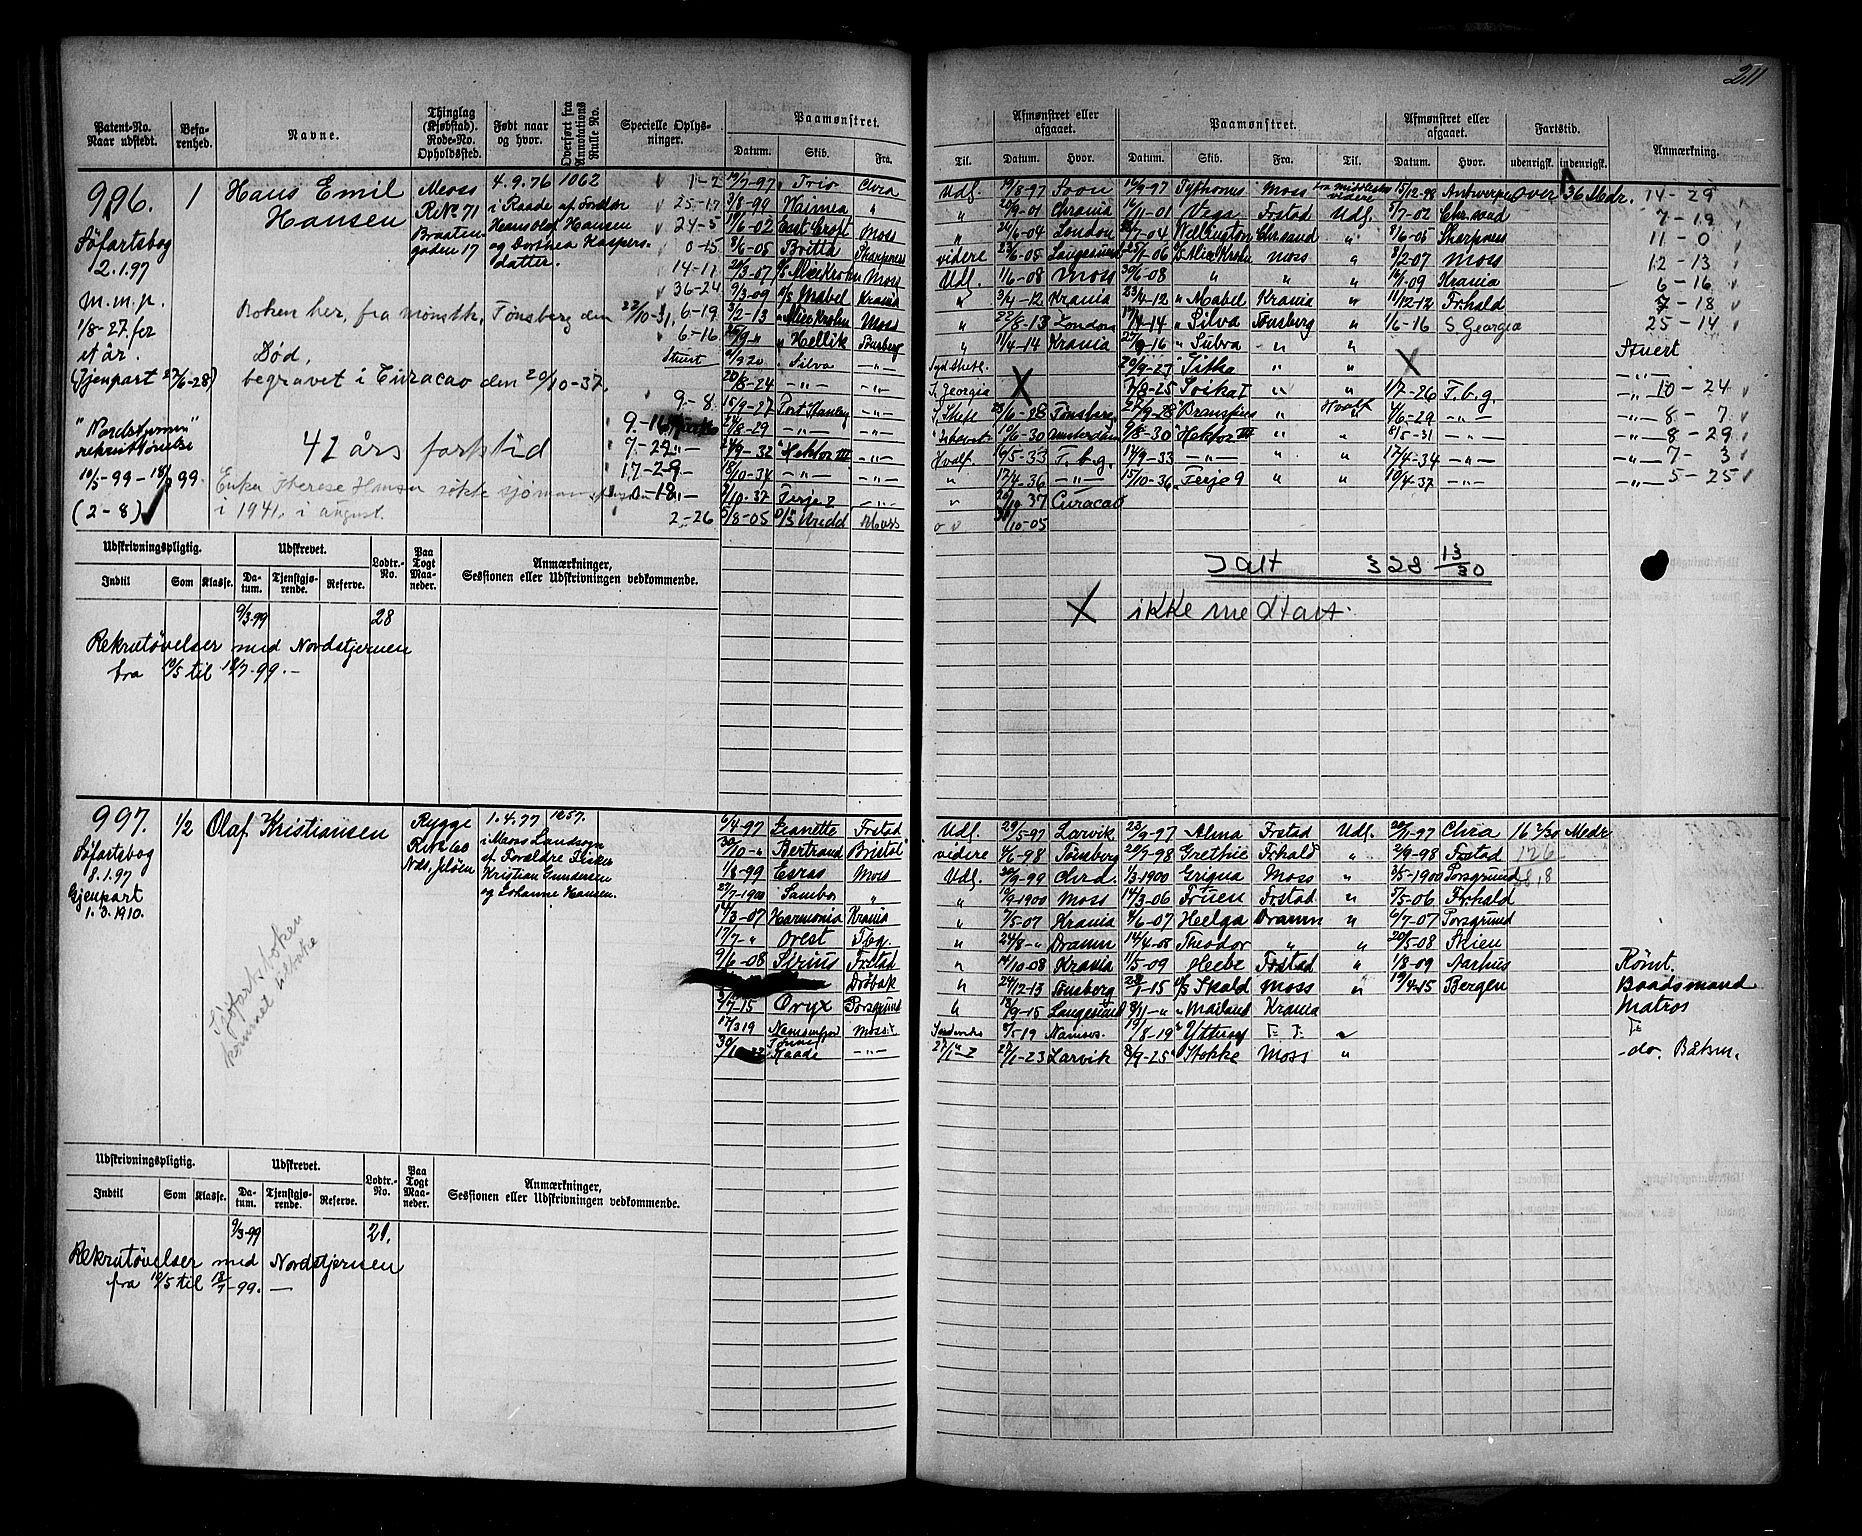 211
Patent-No. Naar udstedt.
Befarenhed.
Navne.
Thinglag (Kjøbstad). Rode-No. Opholdssted.
Født naar og hvor.
Overført fra Annotations Rulle No.
Specielle Oplysninger.
Paamønstret.
Datum. Skib. Fra.
Til.
Afmønstret eller afgaaet.
Datum. Hvor.
Paamønstret.
Datum. Skib. Fra. Til.
Afmønstret eller afgaaet.
Datum. Hvor.
Fartstid.
udenrigsk. indenrigsk.
Anmærkning.
996.
Søfartsbog
2.1.97
m.m.p.
1/8-27 for
et år.
(Gjenpart 27/6-28)
"Nordstjernen"
rekruttøvelse
10/5-99 – 18/7 99
(2-8)
1
Hans Emil
Hansen
Moss
R.No 71
Braaten-
gaden 17
4.9.76
i Raade af Forældre
Hans Olaf Hansen
og Dorthea Kaspers-
datter.
1062
Boken her, fra mønstk. Tønsberg den 22/10-31,
Død,
begravet i Curacao den 20/10-37.
42 års fartstid
i 1941, i august.
1-2
25-17
24-5
0-15
14-11
36-24
6-19
6-16
Stuert
9-8
7-29
17-29
2-26
19/7-97 Trio Chra
3/8-99 Waimea "
19/6-02 East Croft Moss
8/6-05 Britta Sharpness
9/3-09 D/S Mabel Krania
3/2-13 " Alice Krohn Moss
Hellik Tønsberg
Silva -"-
20/8-24 -"- -"-
15/9-27 Port Stanley -"-
21/8-29 -"- -"-
24/9-32 "Hektor III -"-
18/10-34 -"- -"-
9/10-37 Ferje 2 -"-
5/8-05 D/S Uredd Moss
Udl. 19/8-97 Soon 16/9-97 Typhonus Moss fra Middlesbro videre 15/12-98 Antwerpen over 36 Mdr. 14-29
" 20/9-01 Chrania 16/11-01 Vega Frstad Udl. 5/7-02 Chrsand 7-19
" 24/6-04 London Wellington Chrsand " 8/6-05 Sharpness 11-0
videre 23/6-05 Langesund D/S Alice Krohn Moss " 8/2-07 Moss 12-13
Udl. 1/6-08 Moss 30/6-08 " " " 16/1-09 Krania 6-16
" 3/4-12 Krania 23/4-12 " Mabel Krania " 11/12-12 Frhald 7-18
" 22/8-13 London 17/4-14 " Silva Tønsberg " 1/6-16 S Georgia 25-14
" 11/4-14 Krania 25/9-16 " Suova " " Stuert
20/9-27 "Sitka " " X -"-
S. Georgia X 7/8-25 " " 1/7-26 T.b.g. -"- 10-24
23/6-28 Tønsberg 27/9-28 " Hvalf 4/6-29 -"- -"- 8-7
10/6-30 Amsterdam 9/8-30 "Hektor III " " 8/5-31 -"- -"- 8-29
Hvalf. 16/5-33 T.b.g. 14/9-33 -"- " " 17/4-34 -"- -"- 7-3
" 17/4-36 -"- 15/10-36 Ferje 9 " " 10/4-37 -"- -"- 5-25
" 20/10 37 Curacao
31/10-05
I alt 328 13/30
X ikke medtatt.
Udskrivningspligtig.
Indtil Som Klasse.
Udskrevet.
Datum. Tjenstgjørende. Reserve.
Lodtr.-No.
Paa Togt Maaneder.
Anmærkninger,
Sessionen eller Udskrivningen vedkommende.
9/3-99
28
Rekrutøvelser med Nordstjernen
fra 10/5 til 18/7-99.-
997.
Søfartsbog
8.1.97
Gjenpart
1.3.1910.
1/2
Olaf Kristiansen
Rygge
R.No 60
Næs, Jeløen
1.4.77
i Moss Landsogn
af Forældre Fisker
Kristian Gundersen
og Johanne Hansen.
1257.
Sjøfartsboken
kommet tilbake
6/4-97 Jeanette Frstad
30/10-" Bertrand Bristol
1/8-99 Esras Moss
27/7-1900 Sambo "
14/3-07 Harmonia Krania
17/7-" Orest Tbg.
9/6-08 Sirius Frstad
Drøbak
2/7-15 Oryx Porsgrund
17/3 19 Namsenfjord Moss
Raade -"-
Udl. 29/5-97 Larvik 23/9-97 Alma Frstad Udl. 20/11-97 Chra 16 2/30 Mdr
videre 4/6-98 Tønsberg 20/7-98 Grethe Frhald " 2/9-98 Frstad 126
Udl. 20/9-99 Chrd. 1/3-1900 Griqua Moss " 3/5-1900 Porsgrund
" 10/9-1900 Moss 14/3-06 Fruen Frstad " 5/5-06 Frhald
" 7/5-07 Krania 4/6-07 Helga Dramn " 6/7-07 Porsgrund
" 24/8-" Dramn 14/4-08 Theodor " " 20/5-08 Skien
" 14/10-08 Krania 11/5-09 Heebe Frstad " 1/8-09 Aarhus Rømt.
" 24/12-13 Tønsberg 28/1-15 D/S Skald Moss " 19/4-15 Bergen Baadsmand
" 13/9-15 Langesund 8/11-" " Mailand Krania Matros
9/5-19 Namsos 19/8-19 Ytterøy
27/1-23 Larvik 8/9-25 Stokke Moss " -do. Båtsm.
Udskrivningspligtig.
Indtil Som Klasse.
Udskrevet.
Datum. Tjenstgjørende. Reserve.
Lodtr.-No.
Paa Togt Maaneder.
Anmærkninger,
Sessionen eller Udskrivningen vedkommende.
9/3-99
21.
Rekrutøvelser med Nordstjernen
fra 10/5 til 18/7-99. —